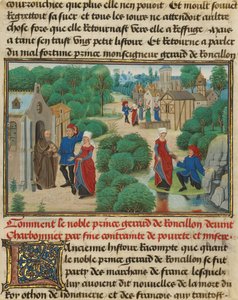 ourouchice que plus elle nen pouoit Et moult souuēt
regretoit sa suer et tous les iours ne attendoit aultre
chose fors que elle retournast vers elle a reffuge mais
a tant sen taist ūng petit listoire Et retourne a parler
du mal fortune prince monseigneur gerard de roucillon
Comment le noble prince gerard de roncillon deuint
charbonnier par fine contrainte de pourete et misere
Ancienne histoire racompte que quant
le noble prince gerard de roncillon se fut
party des marchans de france lesquelz
luy auoient dit nouuelles de la mort du
roy othon de honguerie et des francois